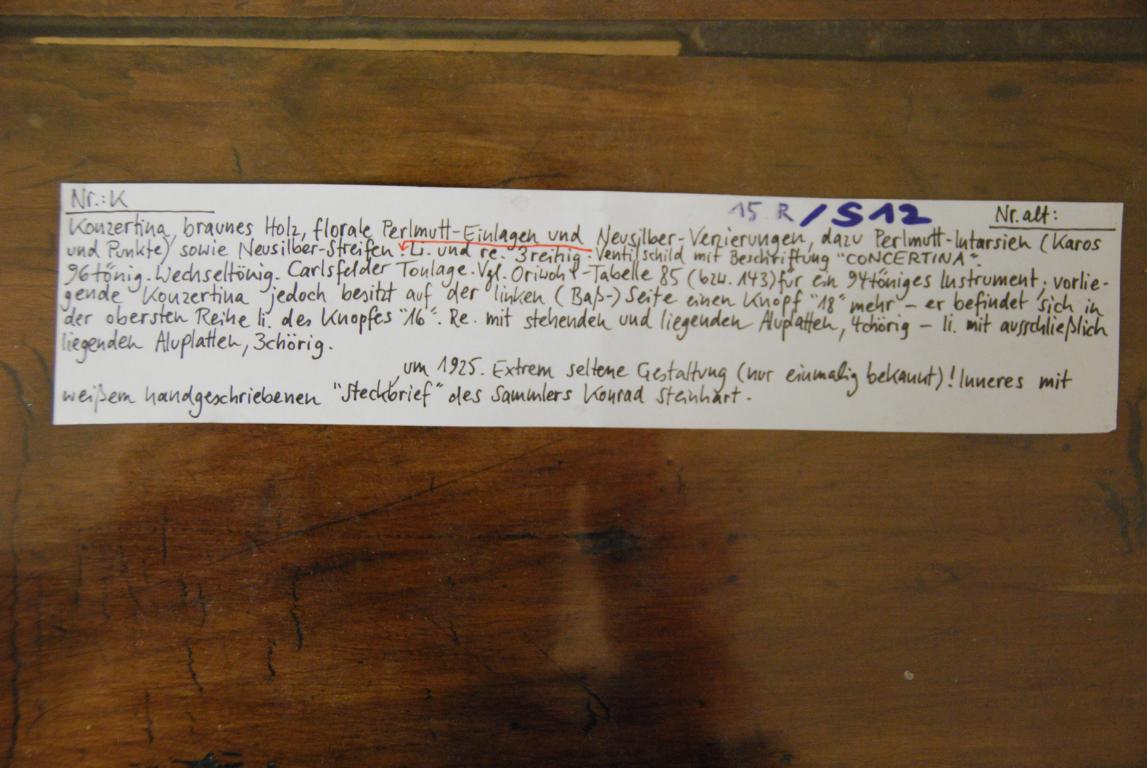 Nr.: K 15 R /S12 Nr. alt:
Konzertina, braunes Holz, florale Perlmutt-Einlagen und Neusilber-Verzierungen, dazu Perlmutt-Intarsien (Karos
und Punkte) sowie Neusilber-Streifen. Li. und re. 3reihig. Ventilschild mit Beschriftung "CONCERTINA".
96tönig. Wechseltönig. Carlsfelder Tonlage. Vgl. Oriwohl-Tabelle 85 (bzw. 143) für ein 94töniges Instrument; vorlie-
gende Konzertina jedoch besitzt auf der linken (Baß-) Seite einen Knopf "18" mehr – er befindet sich in
der obersten Reihe li. des Knopfes "16". Re. mit stehenden und liegenden Aluplatten, 4chörig – li. mit ausschließlich
liegenden Aluplatten, 3chörig.
um 1925. Extrem seltene Gestaltung (nur einmalig bekannt)! Inneres mit
weißem handgeschriebenen "Steckbrief" des Sammlers Konrad Steinhart.